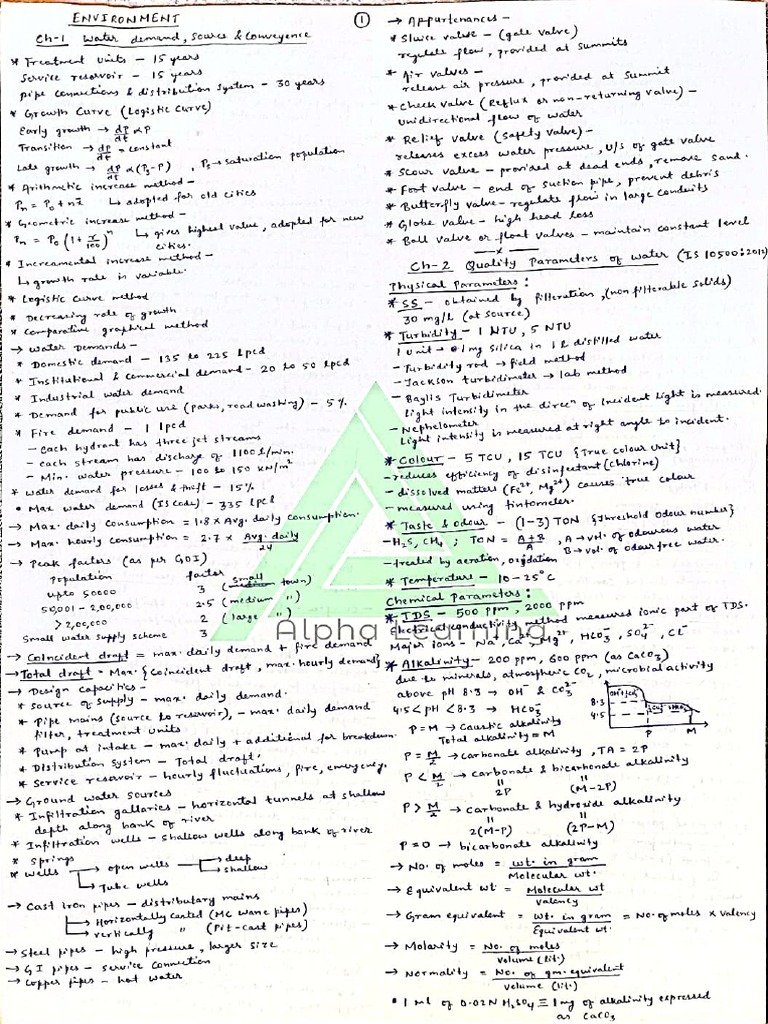 ENVIRONMENT
①
Ch-1 Water demand, Source & Conveyence
* Treatment Units - 15 years
Service reservoir - 15 years
pipe connections & distribution system - 30 years
* Growth Curve (Logistic Curve)
Early growth → dP/dt ∝ P
Transition → dP/dt = constant
Late growth → dP/dt ∝ (Ps-P) , Ps → saturation population
* Arithmetic increase method -
Pn = P0 + nx̄ ↳ adopted for old cities
* Geometric increase method -
Pn = P0 (1 + r/100)^n ↳ gives highest value, adopted for new cities.
* Increamental increase method -
↳ growth rate is variable.
* Logistic Curve method
* Decreasing rate of growth
* Comparative graphical method
→ Water Demands -
* Domestic demand - 135 to 225 lpcd
* Institutional & commercial demand - 20 to 50 lpcd
* Industrial water demand
* Demand for public use (parks, road washing) - 5%
* Fire demand - 1 lpcd
- each hydrant has three jet streams
- each stream has discharge of 1100 l/min.
- Min. water pressure - 100 to 150 kN/m²
* Water demand for losses & theft - 15%
• Max water demand (IS Code) - 335 lpcd
→ Max. daily Consumption = 1.8 × Avg. daily consumption.
→ Max. hourly consumption = 2.7 × Avg. daily/24
→ Peak factors (as per GOI)
Population factor
upto 50000 3 (small town)
50,001 - 2,00,000 2.5 (medium ")
> 2,00,000 2 (large ")
Small water supply scheme 3
→ Coincident draft = max. daily demand + fire demand
→ Total draft = Max. {Coincident draft, max. hourly demand}
→ Design capacities -
* Source of supply - max. daily demand.
* Pipe mains (source to reservoir), - max. daily demand
filter, treatment units
* Pump at intake - max. daily + additional for breakdown.
* Distribution system - Total draft.
* Service reservoir - hourly fluctuations, fire, emergency.
→ Ground water sources
* Infiltration gallaries - horizontal tunnels at shallow
depth along bank of river
* Infiltration wells - shallow wells along bank of river
* Springs
* Wells → open wells → deep
→ shallow
↳ Tube wells
→ Cast iron pipes - distributary mains
→ Horizontally casted (MC Wane pipes)
→ vertically " (Pit-cast pipes)
→ Steel pipes - high pressure, larger size
→ GI pipes - service connection
→ Copper pipes - hot water
→ Appurtenances -
* Sluice valve - (gate valve)
regulate flow, provided at summits
* Air valves -
release air pressure, provided at Summit
* Check valve (Reflux or non-returning valve) -
unidirectional flow of water
* Relief valve (Safety valve) -
releases excess water pressure, U/S of gate valve
* Scour valve - provided at dead ends, remove sand.
* Foot valve - end of suction pipe, prevent debris
* Butterfly valve - regulate flow in large conduits
* Globe valve - high head loss
* Ball valve or float valves - maintain constant level
x
Ch-2 Quality Parameters of water (IS 10500:2012)
Physical Parameters:
* SS - obtained by filteration, (non filterable solids)
30 mg/l (at source)
* Turbidity - 1 NTU, 5 NTU
1 Unit → 1 mg silica in 1 l distilled water
- Turbidity rod → field method
- Jackson turbidimeter → lab method
- Baylis Turbidimeter
Light intensity in the direcn of Incident Light is measured.
- Nephelometer
Light intensity is measured at right angle to incident.
* Colour - 5 TCU, 15 TCU {True colour unit}
- reduces efficiency of disinfectant (chlorine)
- dissolved matters (Fe²⁺, Mg²⁺) causes true colour
- measured using tintometer.
* Taste & odour - (1-3) TON {Threshold odour number}
- H2S, CH4 ; TON = A+B/A , A → vol. of odourous water
B → vol. of odour free water.
- treated by aeration, oxidation
* Temperature - 10-25°C
Chemical Parameters:
* TDS - 500 ppm, 2000 ppm
Electrical conductivity method measured ionic part of TDS.
Major ions - Na⁺, Ca²⁺, Mg²⁺, HCO3⁻, SO4²⁻, Cl⁻
* Alkalinity - 200 ppm, 600 ppm (as CaCO3)
due to minerals, atmospheric CO2, microbial activity
above pH 8.3 → OH⁻ & CO3²⁻
4.5 < pH < 8.3 → HCO3⁻
8.3
4.5
P M
P = M → Caustic alkalinity
Total alkalinity = M
P = M/2 → carbonate alkalinity, TA = 2P
P < M/2 → carbonate & bicarbonate alkalinity
2P (M-2P)
P > M/2 → carbonate & hydroxide alkalinity
2(M-P) (2P-M)
P = 0 → bicarbonate alkalinity
→ No. of moles = wt. in gram/Molecular wt.
→ Equivalent wt = Molecular wt/valency
→ Gram equivalent = wt. in gram/Equivalent wt. = No. of moles × valency
→ Molarity = No. of moles/volume (lit.)
→ Normality = No. of gm. equivalent/volume (lit.)
• 1 ml of 0.02N H2SO4 ≡ 1 mg of alkalinity expressed
as CaCO3
Alpha Learning